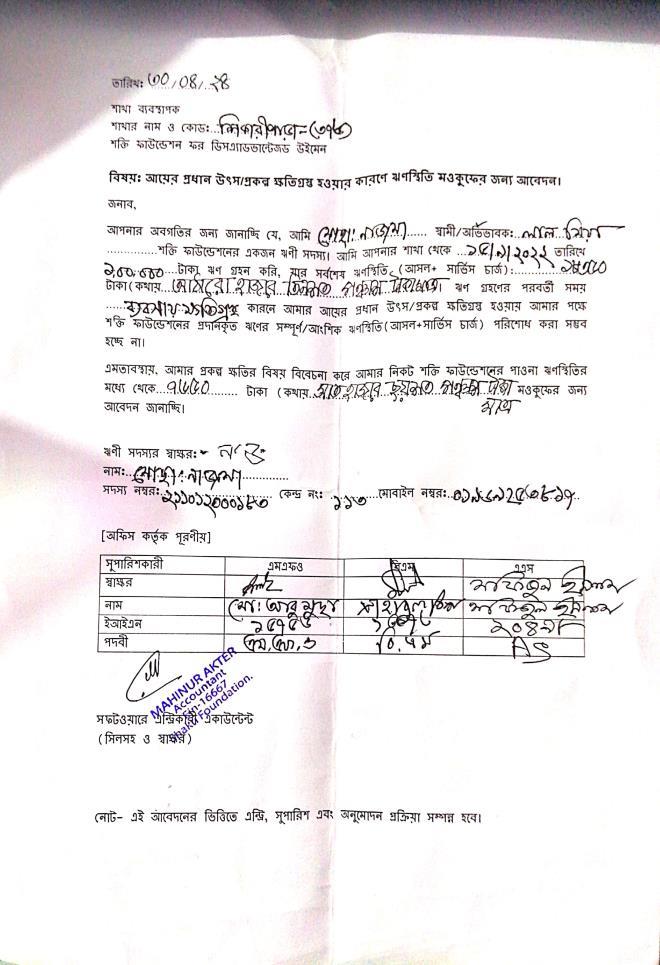 তারিখঃ ৩০/০৪/২৪
শাখা ব্যবস্থাপক
শাখার নাম ও কোডঃ...শিকারীপাড়া-(৩৭৬)
শক্তি ফাউন্ডেশন ফর ডিসএ্যাডভান্টেজড উইমেন
বিষয়ঃ আয়ের প্রধান উৎস/প্রকল্প ক্ষতিগ্রস্থ হওয়ার কারণে ঋণস্থিতি মওকুফের জন্য আবেদন।
জনাব,
আপনার অবগতির জন্য জানাচ্ছি যে, আমি মোছাঃ নাজমা...... স্বামী/অভিভাবক:...লাল মিয়া
..............শক্তি ফাউন্ডেশনের একজন ঋণী সদস্য। আমি আপনার শাখা থেকে তারিখে
টাকা ঋণ গ্রহন করি, যার সর্বশেষ ঋণস্থিতি (আসল+ সার্ভিস চার্জ):
টাকা (কথায় তিনশত পঞ্চাশ ঋণ গ্রহণের পরবর্তী সময়
....ব্যবসায় ক্ষতিগ্রস্থ কারনে আমার আয়ের প্রধান উৎস/প্রকল্প ক্ষতিগ্রস্থ হওয়ায় আমার পক্ষে
শক্তি ফাউন্ডেশনের প্রদানকৃত ঋণের সম্পূর্ণ/আংশিক ঋণস্থিতি(আসল+সার্ভিস চার্জ) পরিশোধ করা সম্ভব
হচ্ছে না।
এমতাবস্থায়, আমার প্রকল্প ক্ষতির বিষয় বিবেচনা করে আমার নিকট শক্তি ফাউন্ডেশনের পাওনা ঋণস্থিতির
মধ্যে থেকে...৭৬৫০......... টাকা (কথায়...সাত হাজার ছয়শত পঞ্চাশ টাকা মওকুফের জন্য
মাত্র
আবেদন জানাচ্ছি।
ঋণী সদস্যর স্বাক্ষর:-
নাম:...মোছাঃ নাজমা..............
সদস্য নম্বর: কেন্দ্র নং: ১১৩ ...মোবাইল নম্বর:
[অফিস কর্তৃক পূরণীয়]
সুপারিশকারী এমএফও বিএম এএস
স্বাক্ষর
নাম
ইআইএন
পদবী এম,এফ,ও বি,এম AS
MAHINUR AKTER
Accountant
Ein-16667
Shakti Foundation.
সফটওয়ারে এন্ট্রিকারী একাউন্টেন্ট
(সিলসহ ও স্বাক্ষর)
নোট- এই আবেদনের ভিত্তিতে এন্ট্রি, সুপারিশ এবং অনুমোদন প্রক্রিয়া সম্পন্ন হবে।